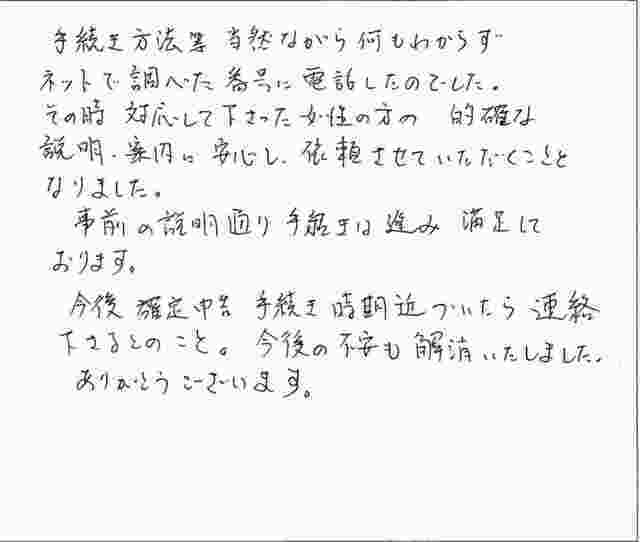 手続き方法等 当然ながら何もわからず
ネットで調べた番号に電話したのでした。
その時 対応して下さった女性の方の 的確な
説明・案内に安心し、依頼させていただくこと
なりました。
事前の説明通り手続きは進み 満足して
おります。
今後 確定申告 手続き時期近づいたら 連絡
下さるとのこと。今後の不安も解消いたしました。
ありがとうございます。